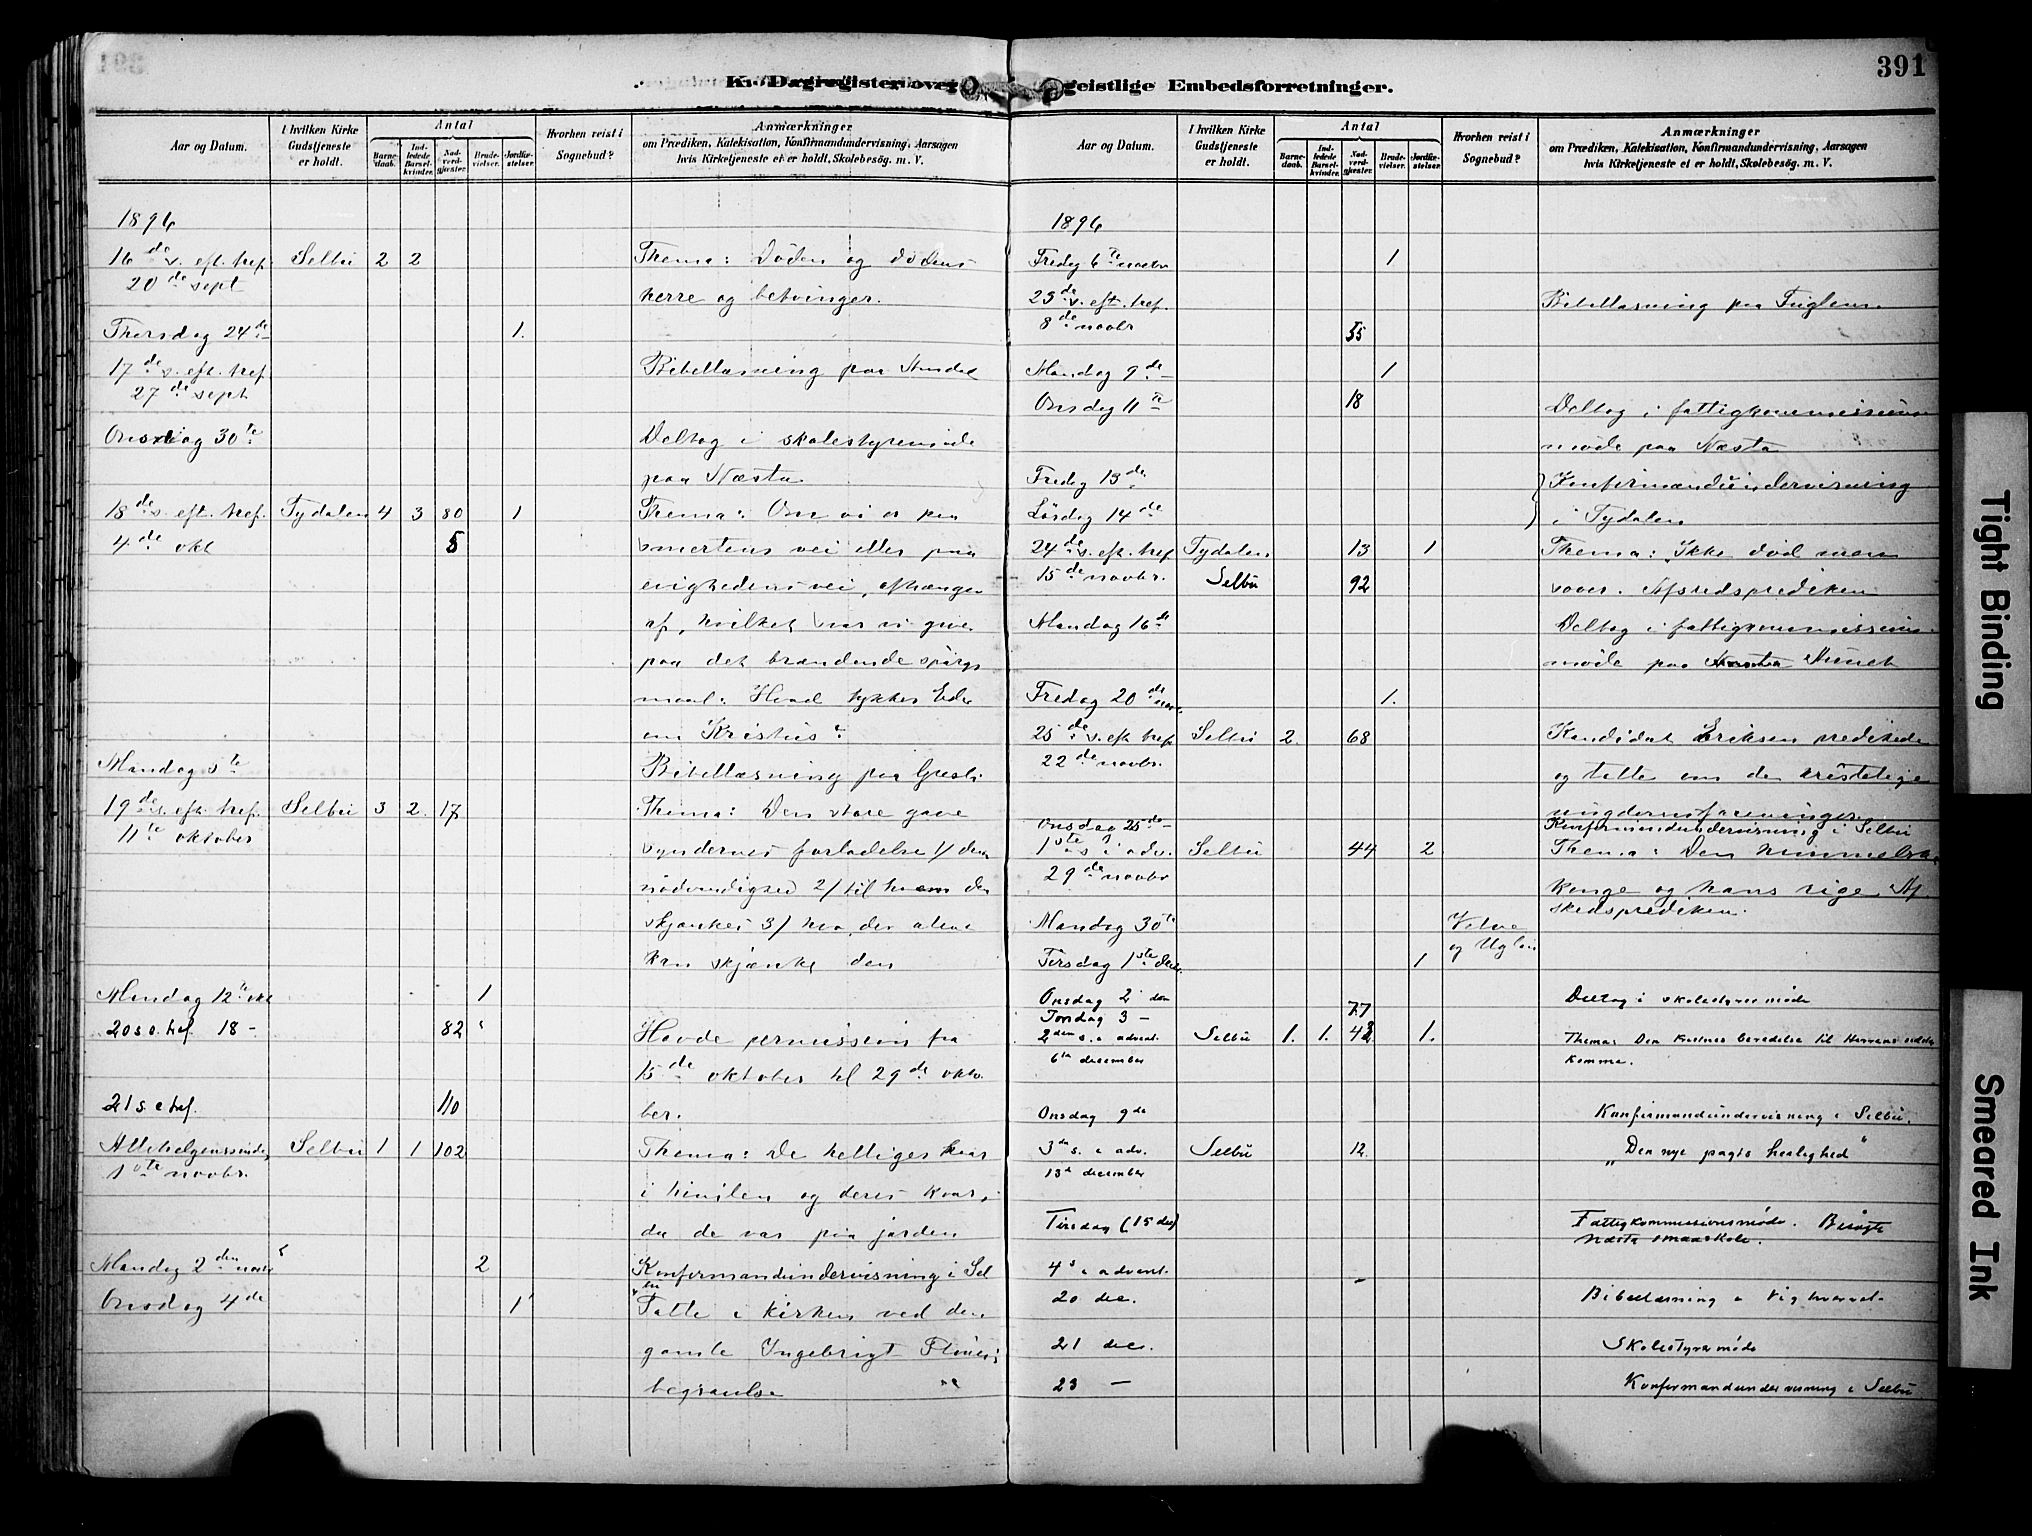 391
K. Dagregister over geistlige Embedsforretninger.
Aar og Datum.
I hvilken Kirke Gudstjeneste er holdt.
Antal
Barnedaab.
Indledede Barselkvinder.
Nadverdgjæster.
Brudevielser.
Jordfæstelser.
Hvorhen reist i Sognebud?
Anmærkninger
om Prædiken, Katekisation, Konfirmandundervisning, Aarsagen
hvis Kirketjeneste et er holdt, Skolebesög. m. V.
1896
16de s. eft. tref. Selbu 2 2 Thema: Döden og dödens
20de sept herre og betvinger.
Thorsdag 24de 1.
17de s. eft. tref Bibellæsning paa
27de sept
Onsdag 30te Deltog i skolestyremöde
paa Næsta
18de s. eft. tref. Tydalen 4 3 80 1 Thema: Om vi er paa
4de okt 5 smertens vei eller paa
evighedens vei, afhænger
af, hvilket svar vi give
paa det brændende spörgs
maal: Hvad tykkes Eder
om Kristus?
Mandag 5te Bibellæsning paa
19de s. eft. tref. Selbu 3 2. 17 Thema: Den store gave
11te oktober syndernes forladelse 1/ dens
nödvendighed 2/ til hvem den
skjænkes 3/ hvo, der alene
kan skjænke den
Mandag 12te okt 1
20 s. e. tref. 18 - 82 Havde permission fra
15de oktober til 29de okto
21 s. e tref. 110 ber.
Allehelgenssöndag Selbu 1 1 102 Thema: De helliges kaar
1ste novbr. i himlen og deres kaar,
da de var paa jorden
Mandag 2den novbr 2 Konfirmandundervisning i Sel
Onsdag 4de 1 Talte i kirken ved den
gamle Ingebrigt
begravelse
Aar og Datum.
I hvilken Kirke Gudstjeneste er holdt.
Antal
Barnedaab.
Indledede Barselkvinder.
Nadverdgjæster.
Brudevielser.
Jordfæstelser.
Hvorhen reist i Sognebud?
Anmærkninger
om Prædiken, Katekisation, Konfirmandundervisning, Aarsagen
hvis Kirketjeneste et er holdt, Skolebesög. m. V.
1896
Fredag 6te novbr 1
23de s. eft. tref. Bibellæsning paa Fuglem.
8de novbr 55
Mandag 9de - 1
Onsdag 11te 18 Deltog i fattigkommissions
möde paa Næsta
Fredag 13de Konfirmandundervisning
Lördag 14de i Tydalen
24de s. eft. tref Tydalen 13 1 Thema: Ikke död men
15de novbr. Selbu 92 sover. Afskedsprediken
Mandag 16de Deltog i fattigkommissions
möde paa
Fredag 20de nov. 1.
25de s. eft tref Selbu 2. 68 Kandidat Eriksen predikede
22de novbr. og talte om de kristelige
ungdomsforeninger
Onsdag 25de - Konfirmandundervisning i Selbu
1ste s. i adv. Selbu 44 2 Thema: Den himmelske
29de novbr konge og hans rige. Af
skedsprediken.
Mandag 30te og
Tirsdag 1ste dec. 1
Onsdag 2 den 77 Deltog i skolestyremöde
Torsdag 3 -
2den s. i advent. Selbu 1. 1. 42 1. Thema: Den kristnes beredelse til Herrens
6te december komme.
Onsdag 9de Konfirmandundervisning i Selbu.
3de s. i adv. Selbu 12 „Den nye pagts herlighed"
13de december
Tirsdag (15 dec) Fattigkommissionsmöde. Besögte
Næsta smaaskole.
4s i advent. -
20 dec. Bibellæsning i
21 dec. Skolestyremöde
23 - Konfirmandundervisning i Selbu
Tight Binding
Smeared Ink